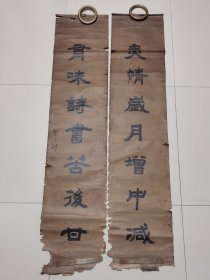 爽情歲月增中減
有味詩書苦後甘